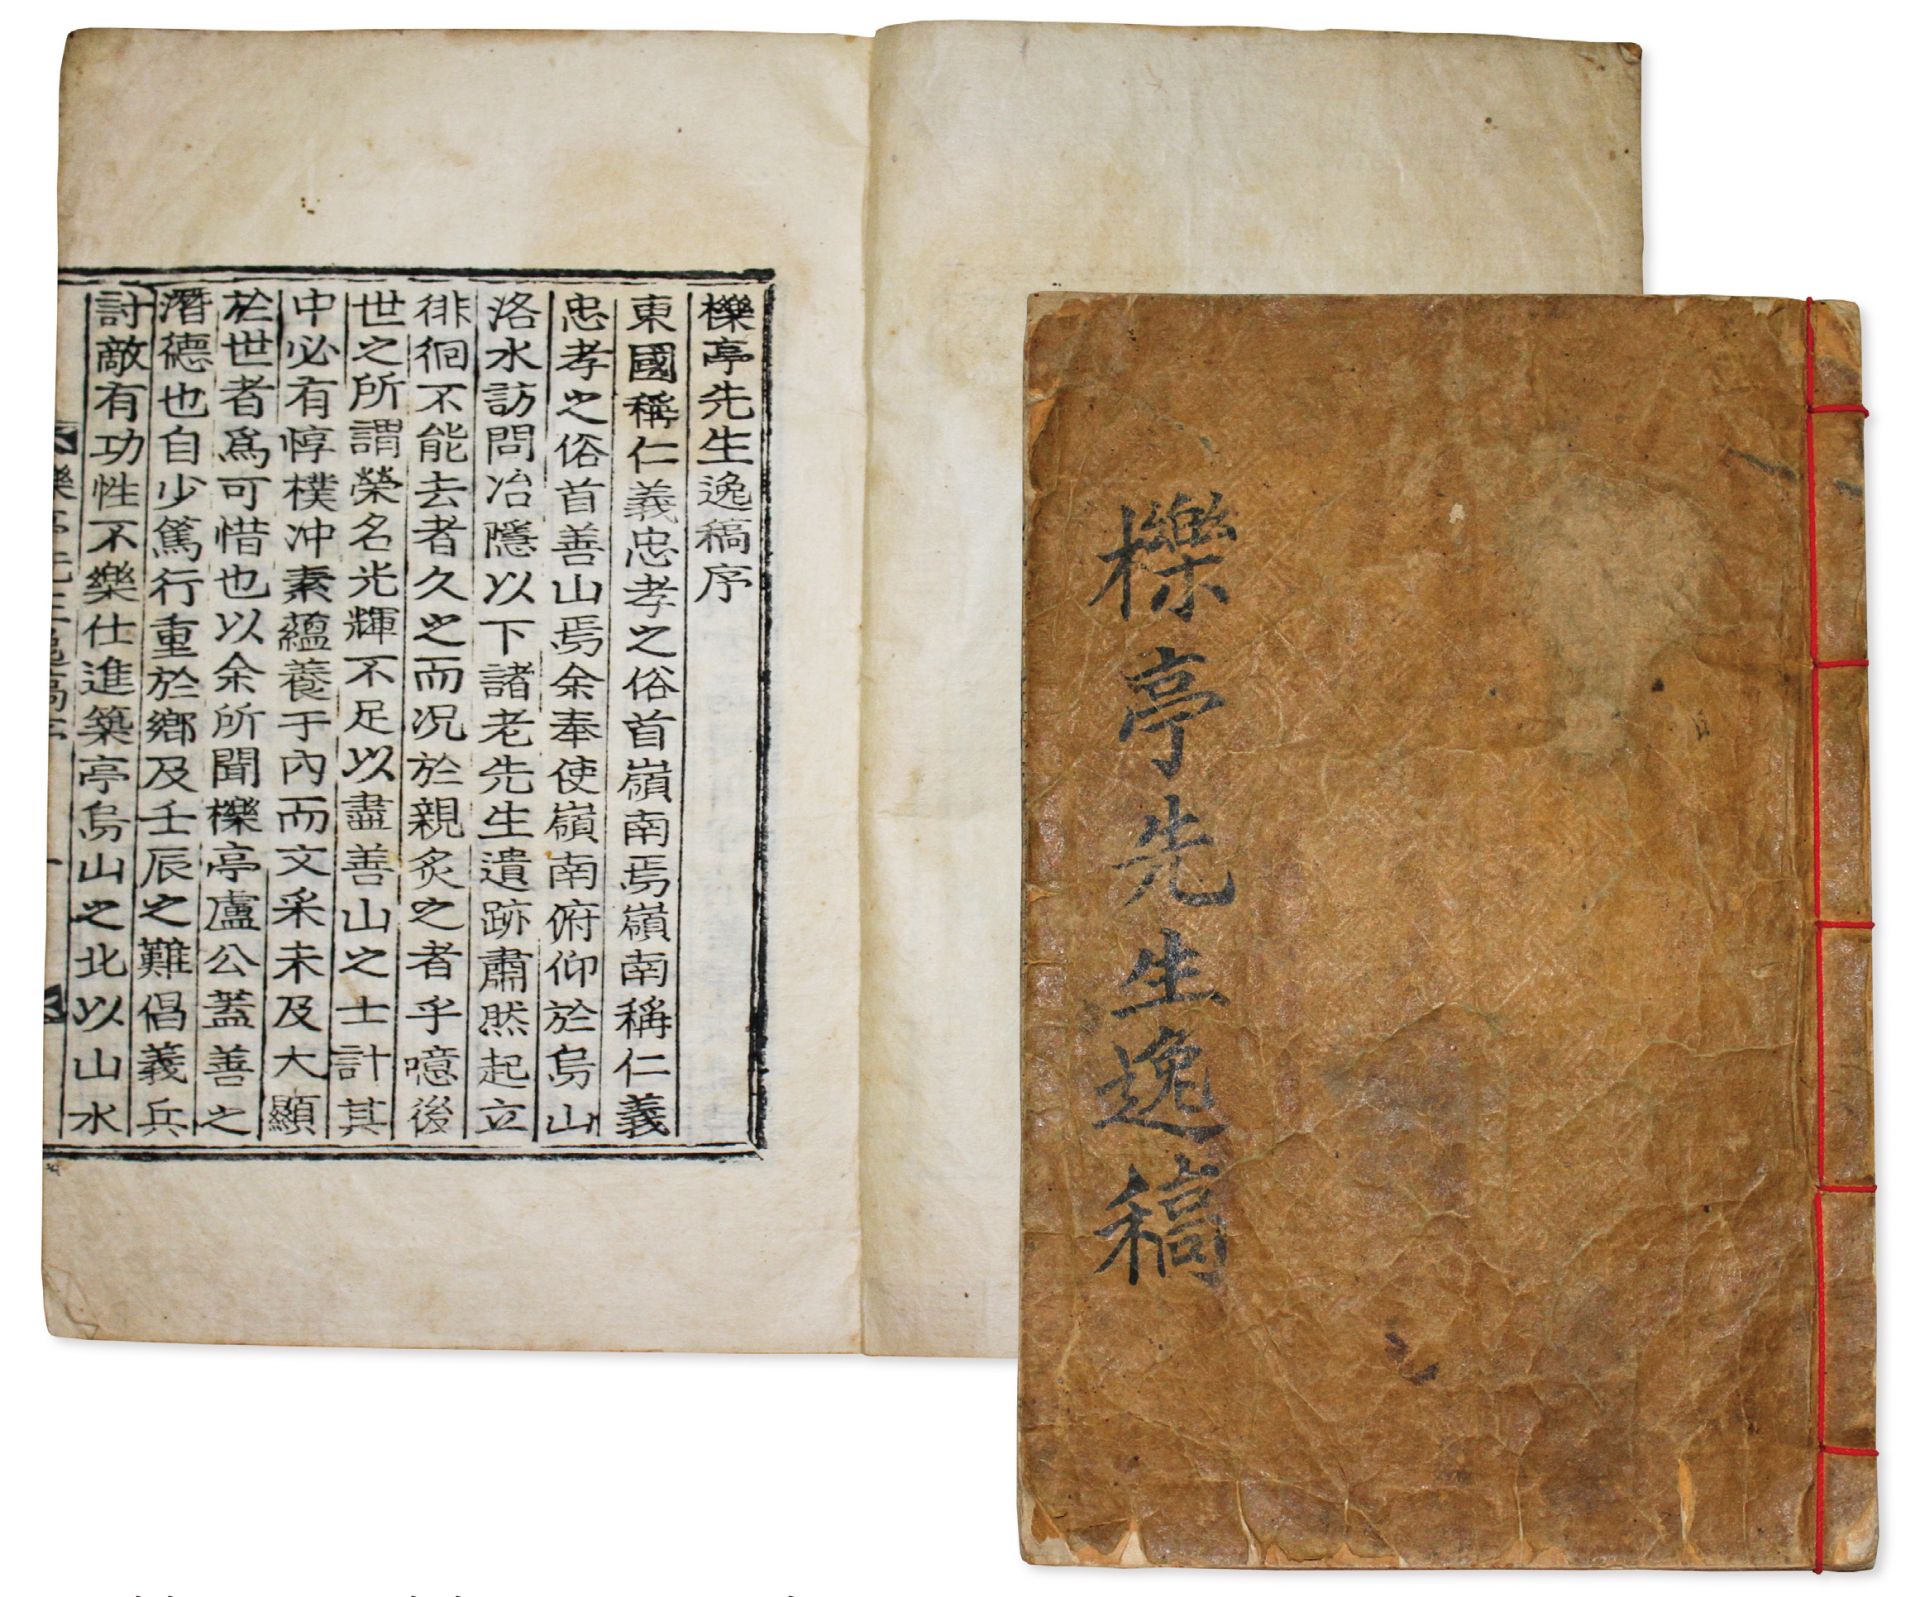 櫟亭先生逸稿序
東國稱仁義忠孝之俗首嶺南焉嶺南稱仁義
忠孝之俗首善山焉余奉使嶺南俯仰於烏山
洛水訪問冶隱以下諸老先生遺跡肅然起立
徘徊不能去者久之而况於親炙之者乎噫後
世之所謂榮名光輝不足以盡善山之士計其
中必有惇樸冲素蘊養于內而文采未及大顯
於世者爲可惜也以余所聞櫟亭盧公蓋善之
潛德也自少篤行重於鄕及壬辰之難倡義兵
討敵有功性不樂仕進築亭烏山之北以山水
櫟亭先生逸稿序
一
櫟亭先生逸稿